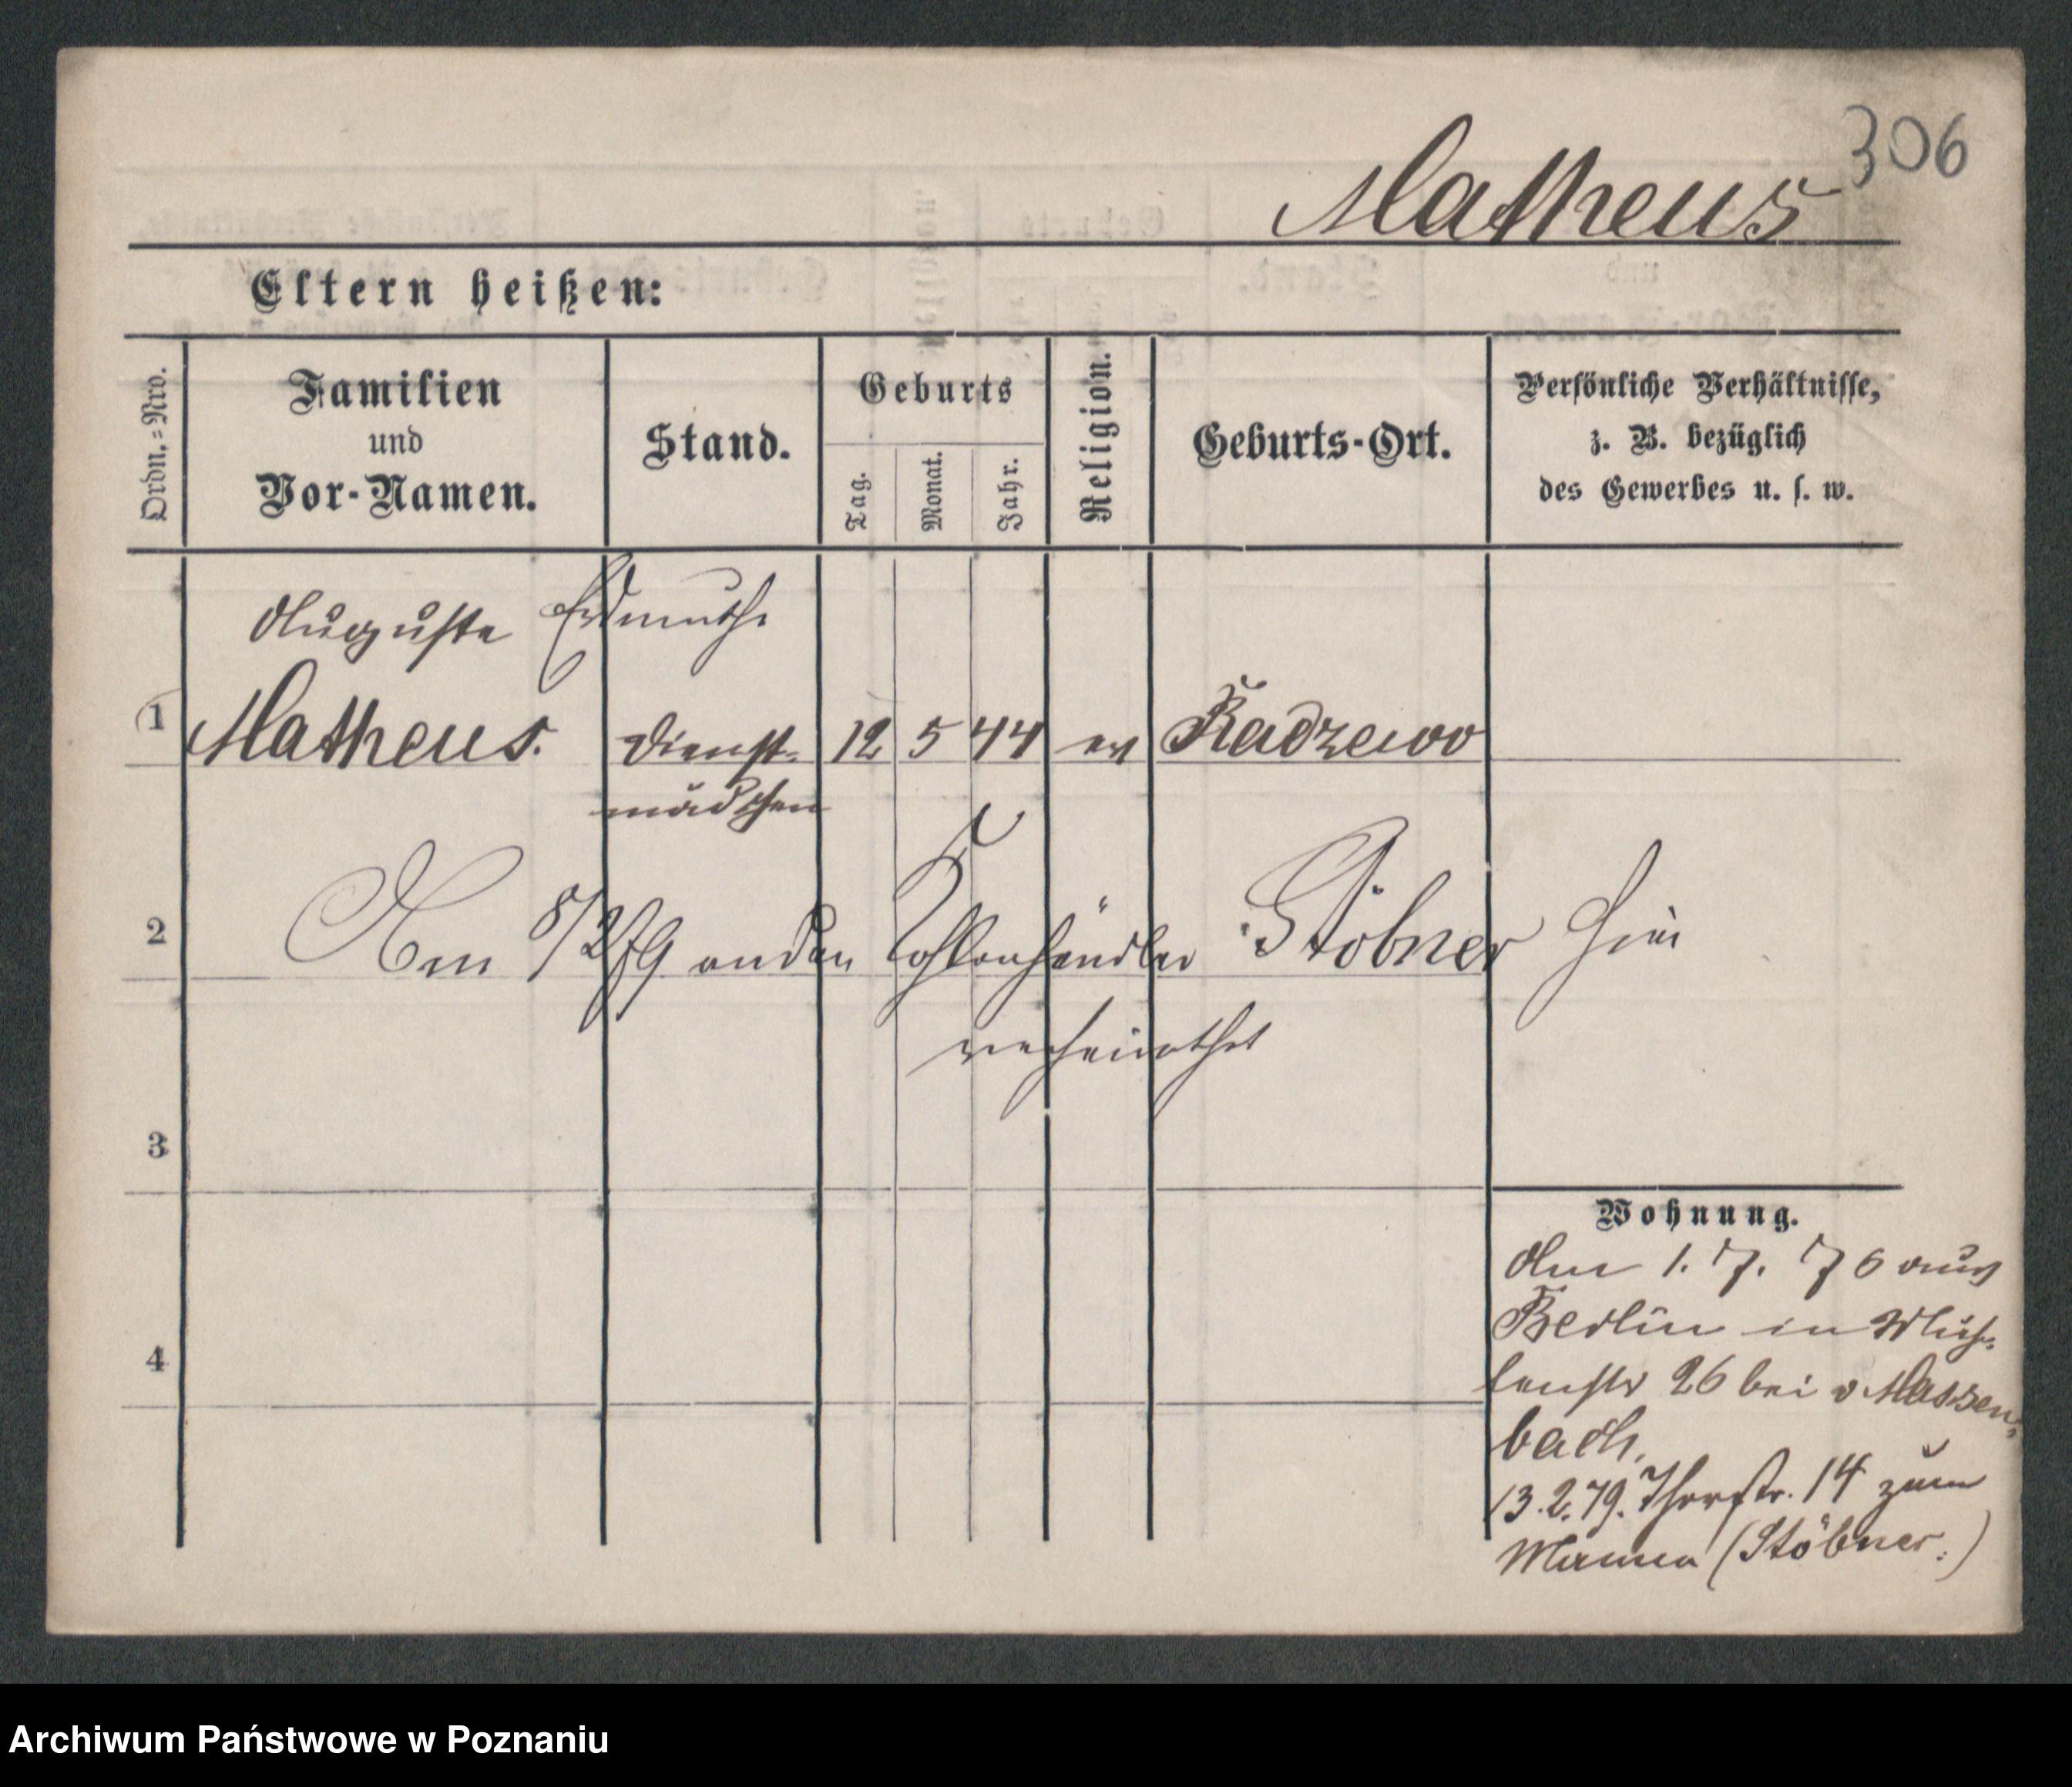 306
Matheus
Eltern heißen:
Ordn.=Nro.
Familien
und
Vor-Namen.
Stand.
Geburts
Tag.
Monat.
Jahr.
Religion.
Geburts-Ort.
Persönliche Verhältnisse,
z. B. bezüglich
des Gewerbes u. s. w.
Auguste Erdmuthe
1 Matheus. Dienst- 12 5 44 ev Radzewo
mädchen
2 Am 8/2 79 an den Kohlenhändler Stöbner hier
verheirathet
3
4
Wohnung.
Am 1. 7. 76 aus
Berlin in Müh-
lenstr 26 bei v Massen-
bach.
13.2.79. Thorstr. 14 zum
Manne (Stöbner.)
Archiwum Państwowe w Poznaniu